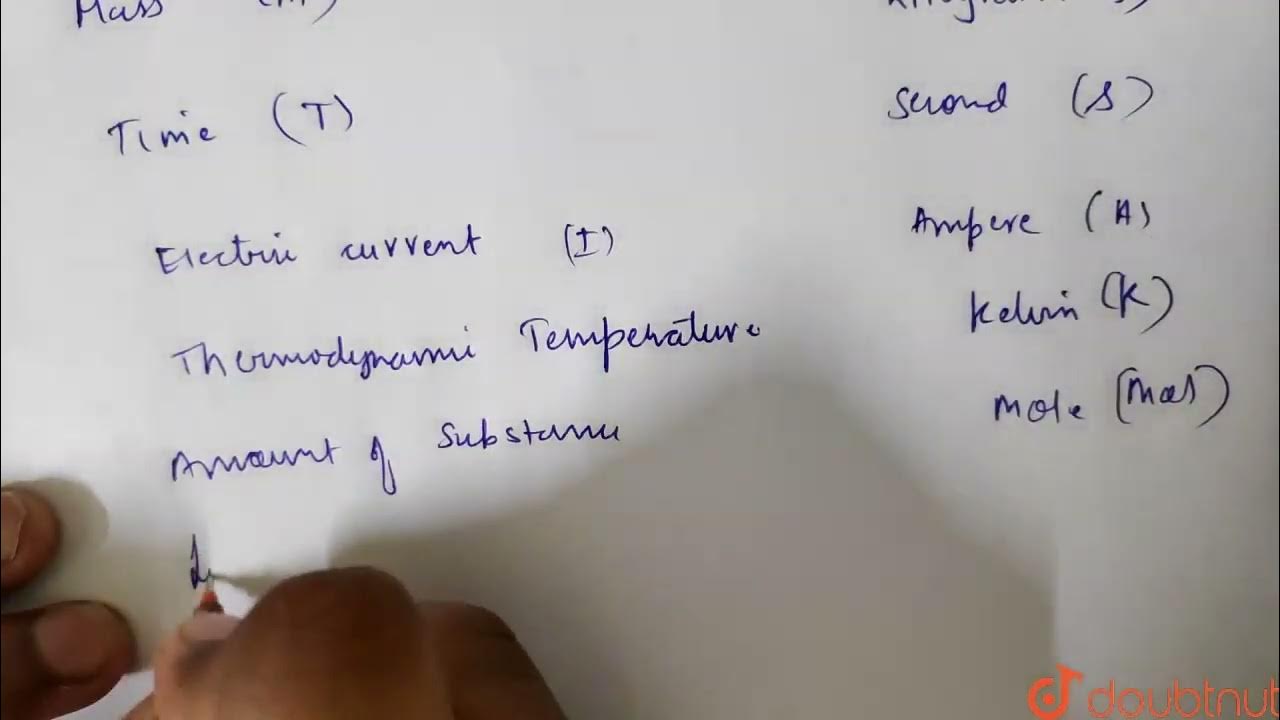 Mass (M)
Time (T) Second (S)
Electric current (I) Ampere (A)
Thermodynamic Temperature Kelvin (K)
Amount of Substance Mole
doubtnut